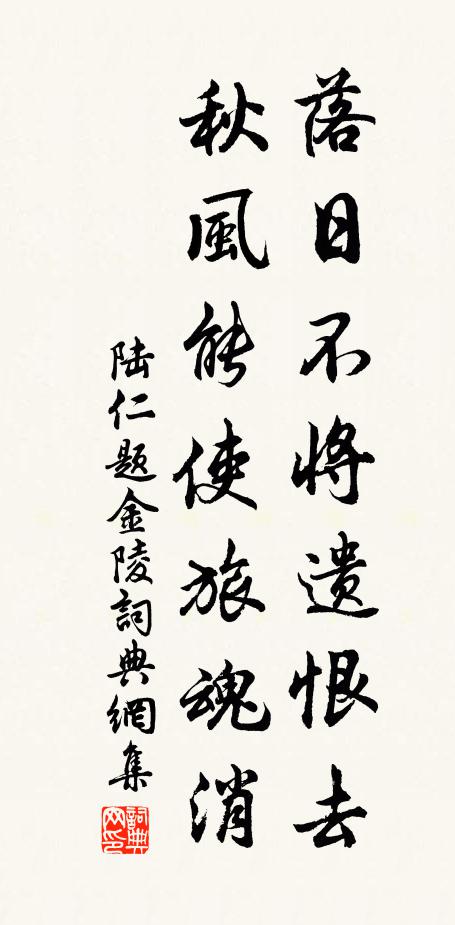 落日不將遺恨去
秋風能使旅魂消
陆仁題金陵詞典網集
詞典网印